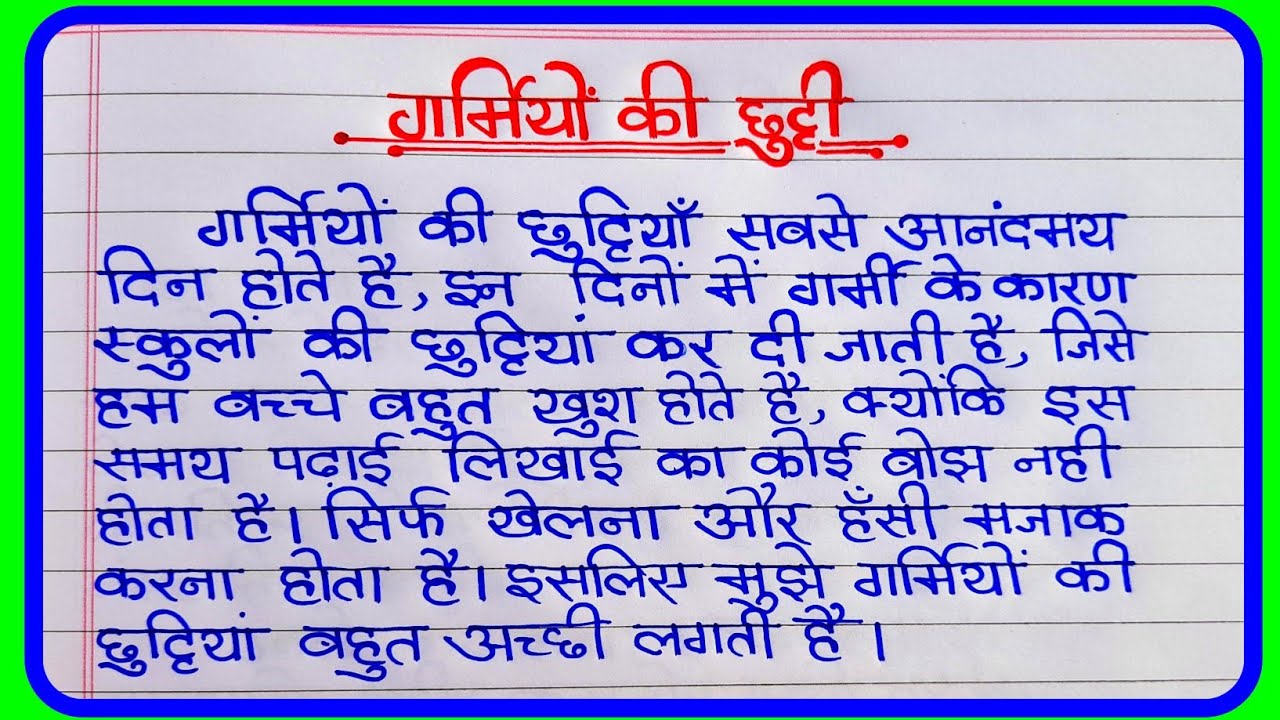 गर्मियों की छुट्टी
गर्मियों की छुट्टियाँ सबसे आनंदमय
दिन होते है, इन दिनों में गर्मी के कारण
स्कुलों की छुट्टियां कर दी जाती है, जिसे
हम बच्चे बहुत खुश होते है, क्योंकि इस
समय पढ़ाई लिखाई का कोई बोझ नही
होता है। सिर्फ खेलना और हँसी मजाक
करना होता है। इसलिए मुझे गर्मियों की
छुट्टियां बहुत अच्छी लगती है ।